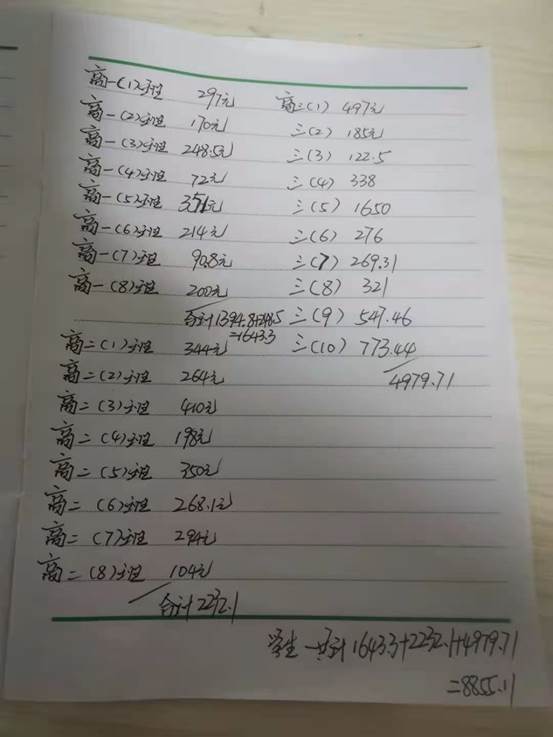 高一(1)班 297元
高一(2)班 170元
高一(3)班 248.5元
高一(4)班 72元
高一(5)班 351元
高一(6)班 214元
高一(7)班 90.8元
高一(8)班 200元
合计1394.8+248.5
=1643.3
高二(1)班 344元
高二(2)班 264元
高二(3)班 410元
高二(4)班 198元
高二(5)班 350元
高二(6)班 268.1元
高二(7)班 294元
高二(8)班 104元
合计2232.1
高三(1) 497元
三(2) 185元
三(3) 122.5
三(4) 338
三(5) 1650
三(6) 276
三(7) 269.31
三(8) 321
三(9) 547.46
三(10) 773.44
4979.71
学生一共计1643.3+2232.1+4979.71
=8855.11